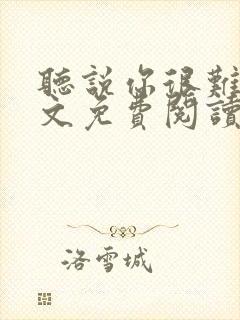 聽說你很難
文免費閱讀
洛雪城